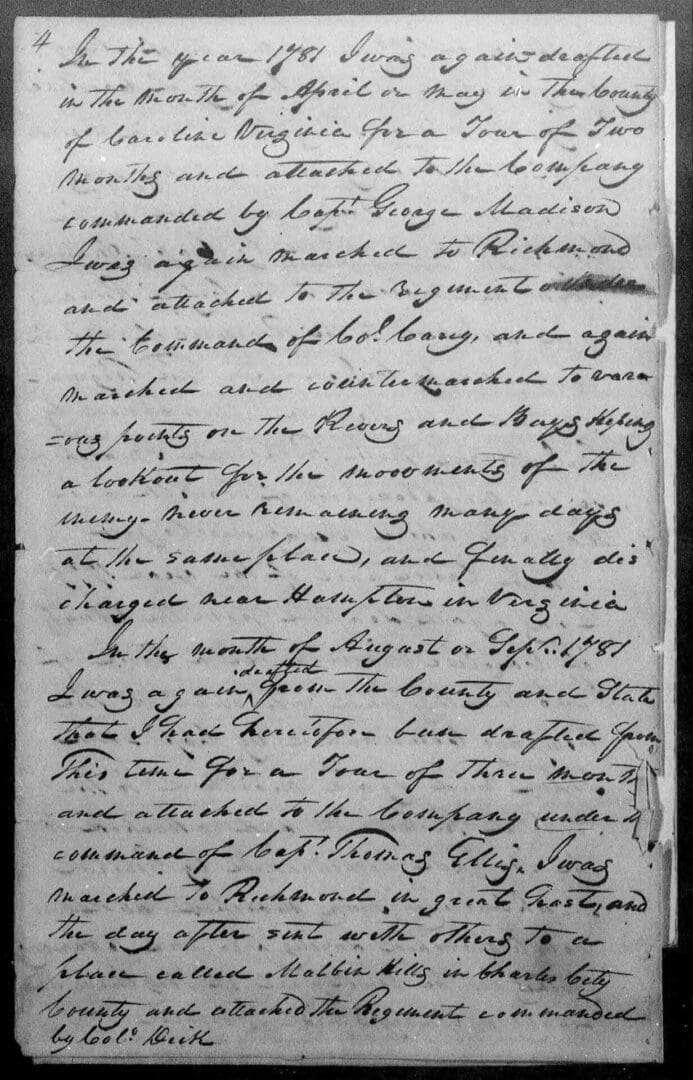 4
In the year 1781 I was again drafted
in the month of April or May in the County
of Caroline Virginia for a Tour of Two
months and attached to the Company
commanded by Capt. George Madison
I was again marched to Richmond
and attached to the regiment under
the Command of Col. Cary, and again
marched and countermarched to vari
=ous points on the Rivers and Bays keeping
a lookout for the moovments of the
enemy never remaining many days
at the same place, and finally dis
charged near Hampton in Virginia
In the month of August or Sept. 1781
I was again drafted from the County and State
that I had heretofore been drafted from
This time for a Tour of three month
and attached to the Company under
command of Capt. Thomas Ellis, I was
marched to Richmond in great hast, and
the day after sent with others to a
place called Malbin Hills in Charles City
County and attached the Regiment commanded
by Colo. Dick